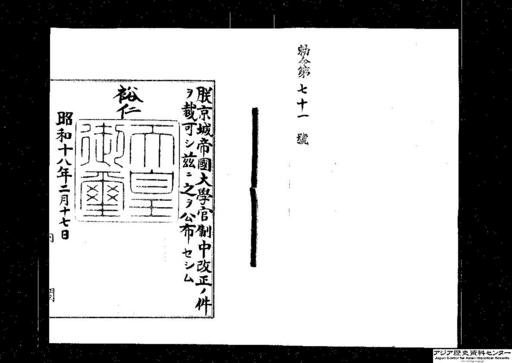 勅令第七十一號
朕京城帝國大學官制中改正ノ件
ヲ裁可シ茲ニ之ヲ公布セシム
裕仁
天皇
御璽
昭和十八年二月十七日
アジア歴史資料センター
Japan Center for Asian Historical Records